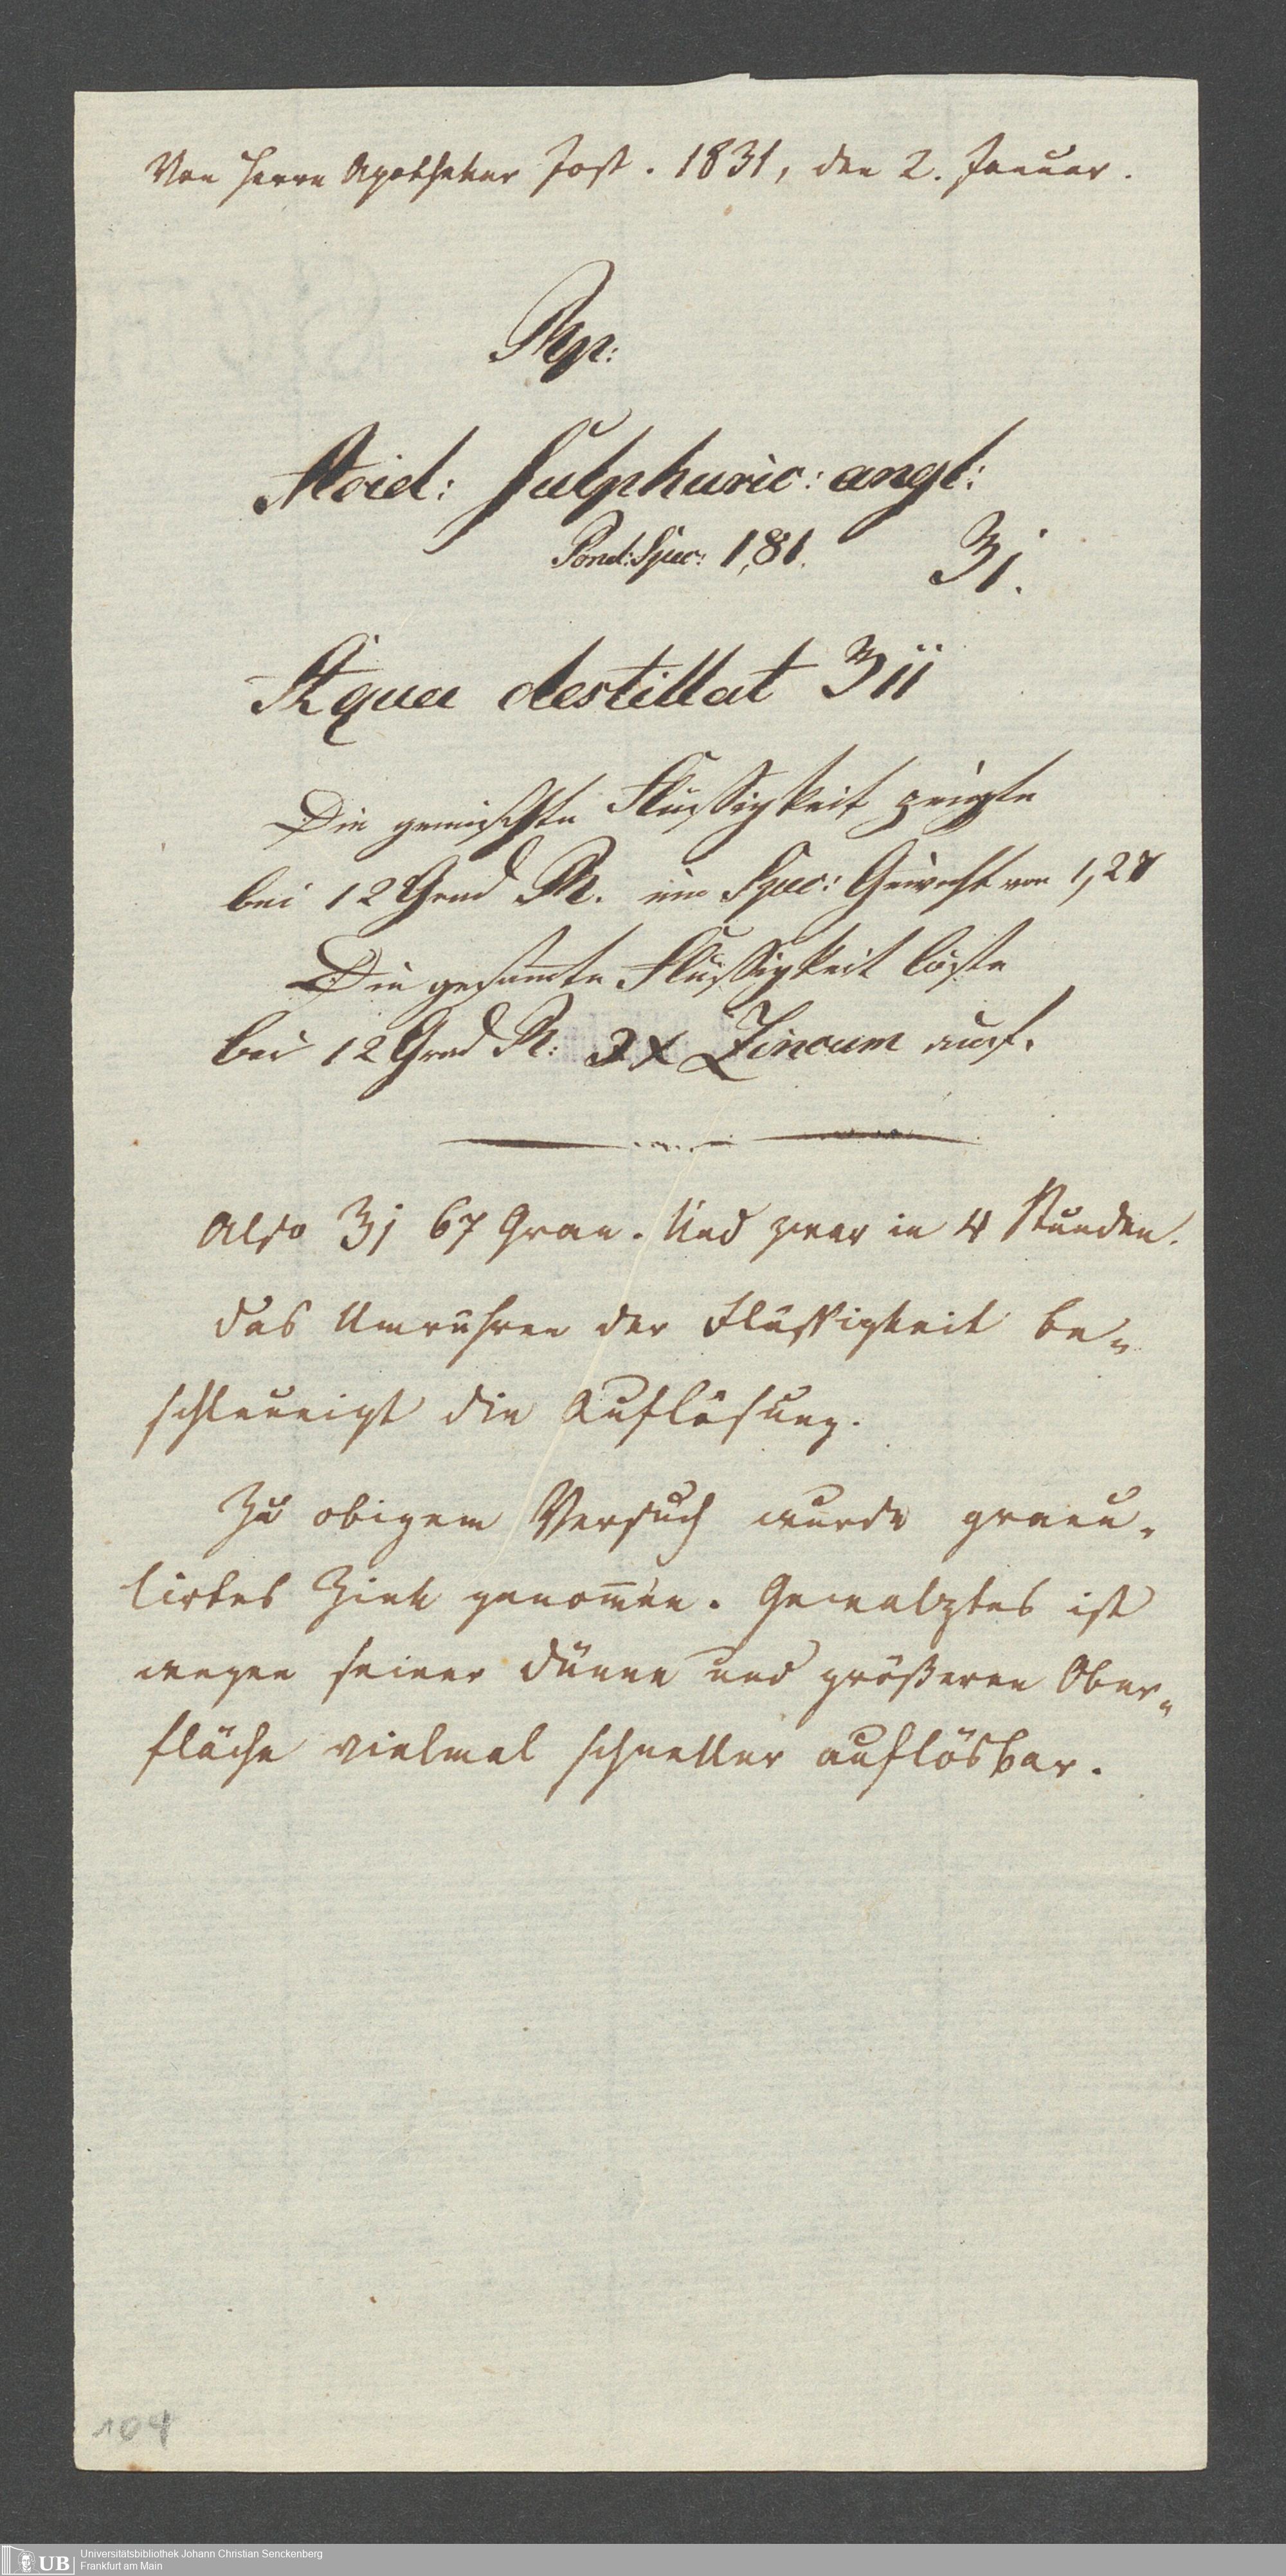 Von Herrn Apotheker Jost. 1831, den 2. Januar.
Rp:
Acid: Sulphuric: angl:
Pond: Spec: 1,81. ℥j.
Aqua destillat ℥ii
Die gemischte Flüssigkeit zeigte
bei 12 Grad R. ein Spec: Gewicht von 1,27
Die gesamte Flüssigkeit löste
bei 12 Grad R: Zincum auf.
Also 67 Gran. Und zwar in 4 Stunden.
Das Umrühren der Flüssigkeit be-
schleunigt die Auflösung.
Zu obigem Versuch wurde granu-
lirtes Zink genom̄en. Gewalztes ist
wegen seiner Dünne und größeren Ober-
fläche vielmal schneller auflösbar.
104
UB Universitätsbibliothek Johann Christian Senckenberg
Frankfurt am Main